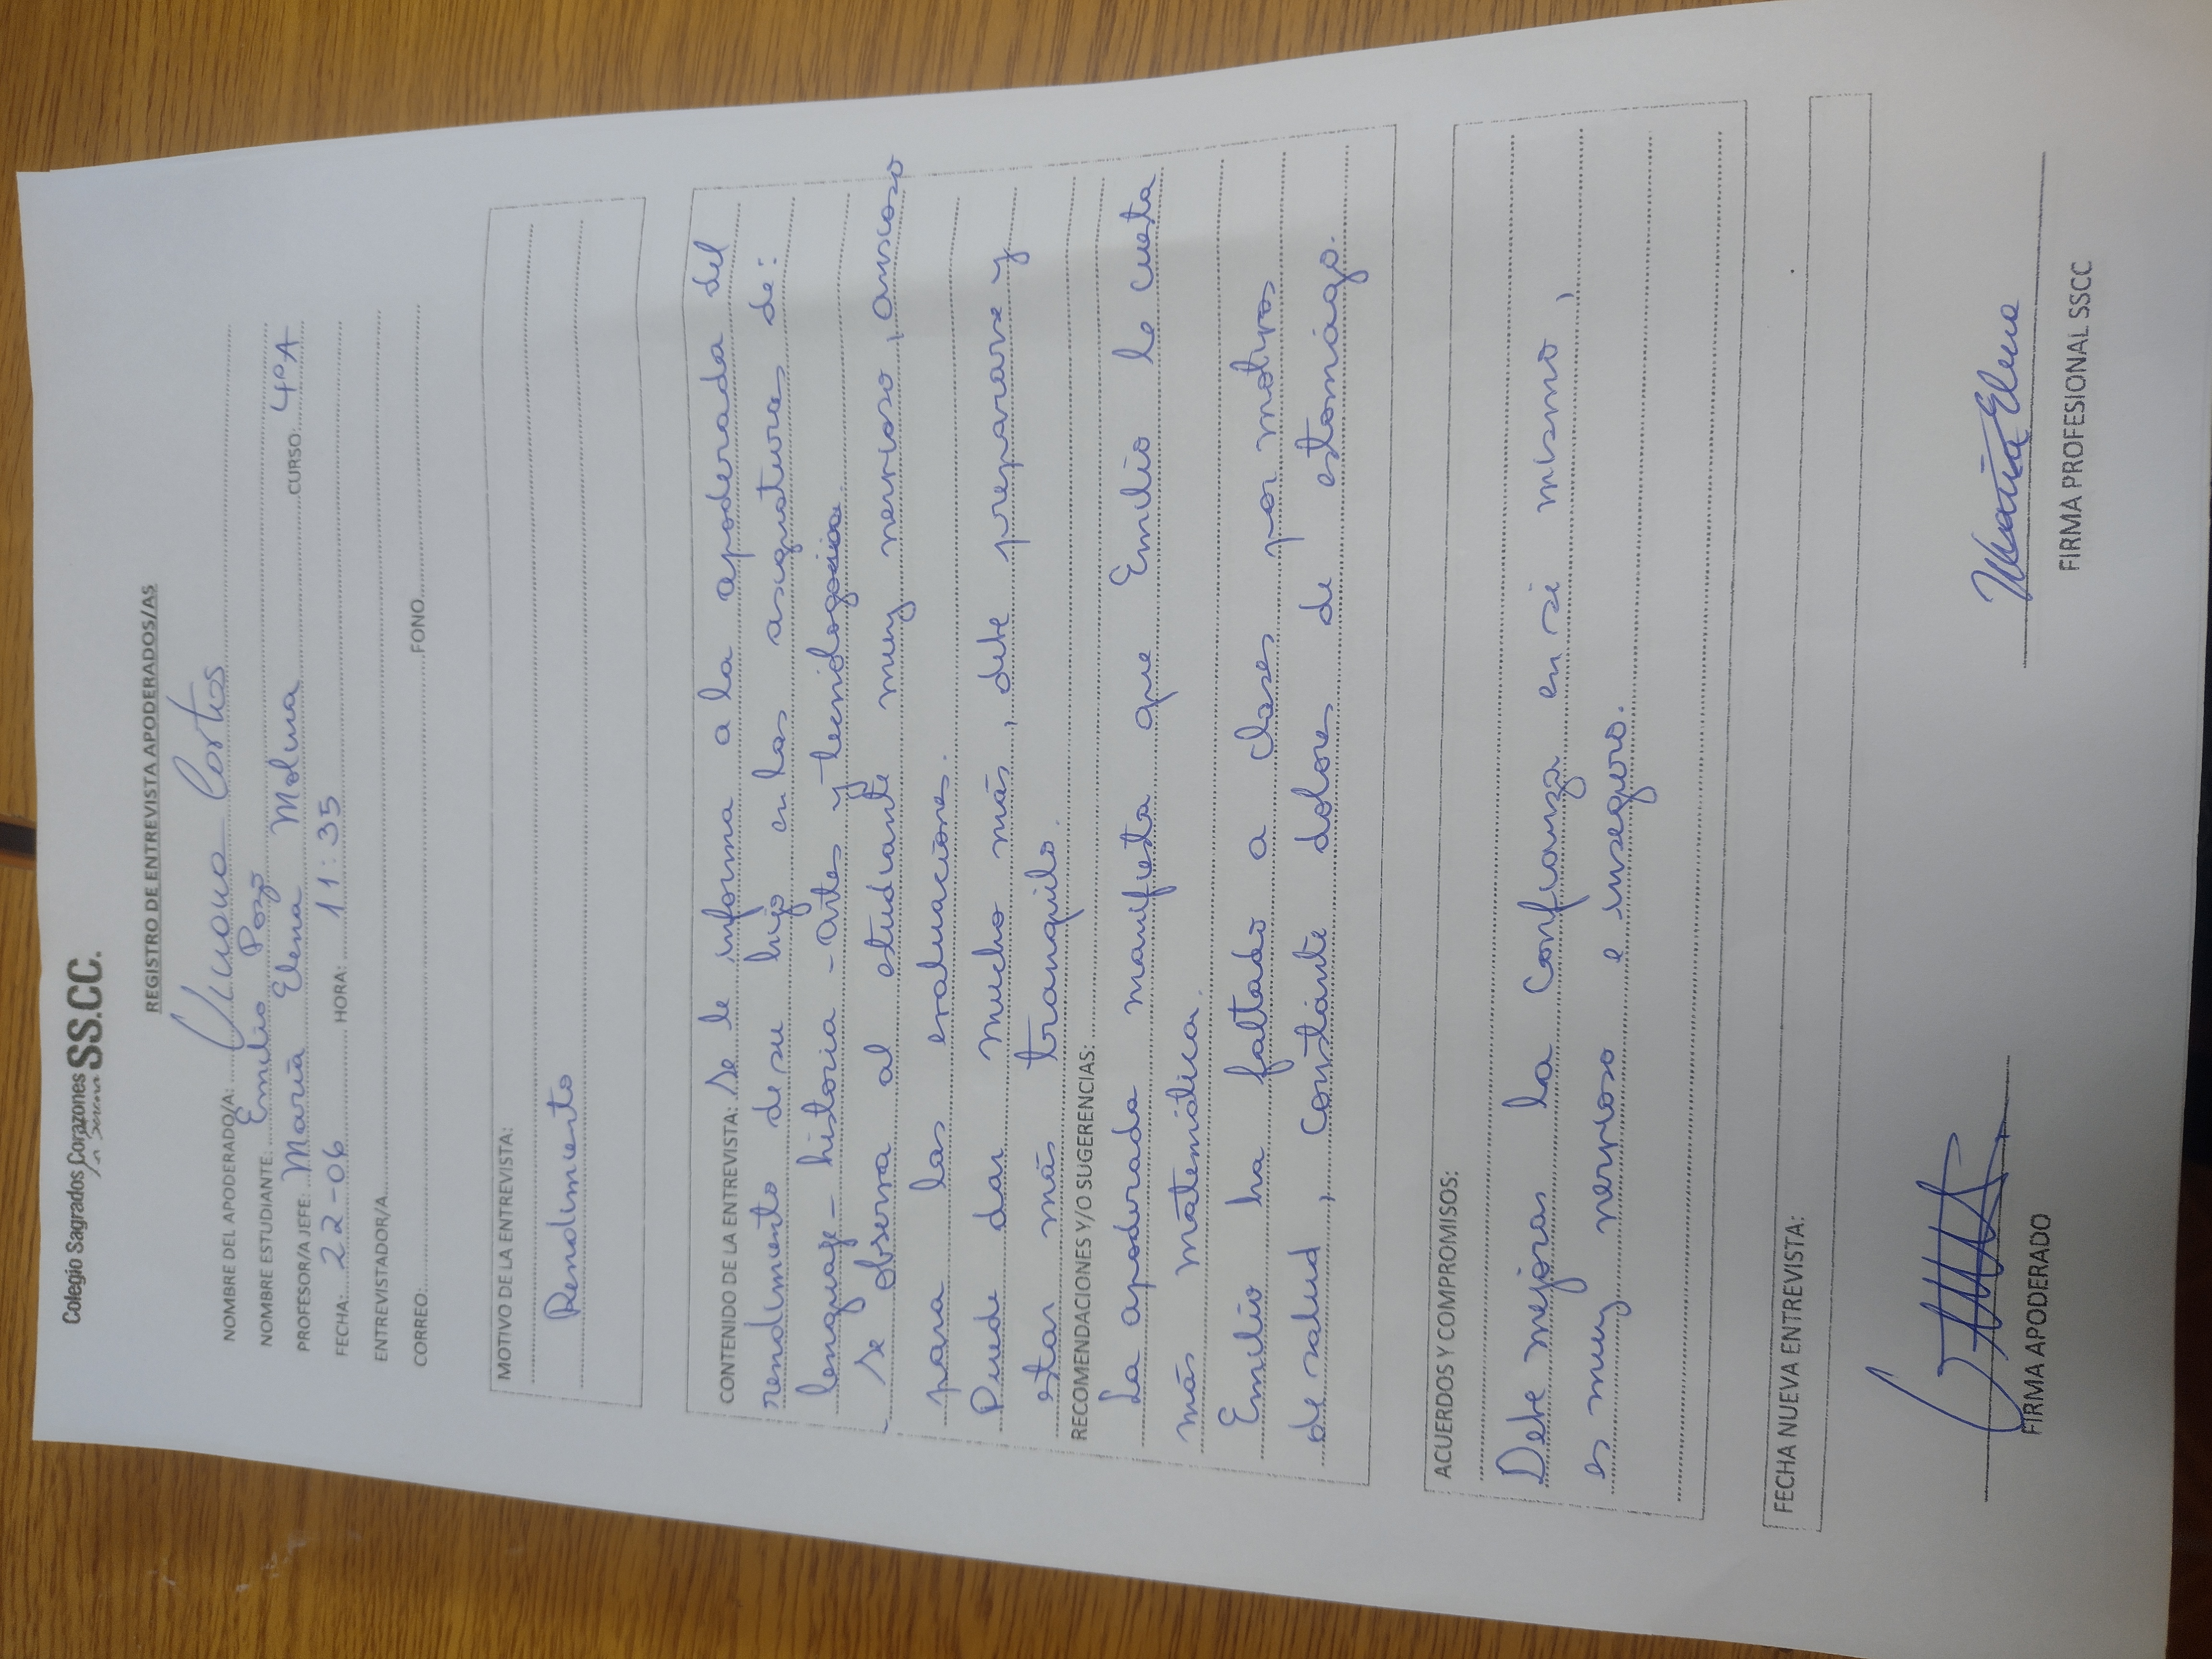 Colegio Sagrados Corazones SS.CC.
REGISTRO DE ENTREVISTA APODERADOS/AS
NOMBRE DEL APODERADO/A: Cortes
NOMBRE ESTUDIANTE: Emilio Pozo
PROFESOR/A JEFE: María Elena Molina CURSO: 4ºA
FECHA: 22-06 HORA: 11:35
ENTREVISTADOR/A
CORREO: FONO
MOTIVO DE LA ENTREVISTA:
Rendimiento
CONTENIDO DE LA ENTREVISTA: Se le informa a la apoderada del
rendimiento de su hijo en las asignaturas de:
lenguaje - historia - artes y tecnología
Se observa al estudiante muy nervioso, ansioso
para las evaluaciones.
Puede dar mucho más, debe prepararse y
estar más tranquilo.
RECOMENDACIONES Y/O SUGERENCIAS:
La apoderada manifiesta que Emilio le cuesta
más matemática.
Emilio ha faltado a clases por motivos
de salud, constante dolores de estomágo.
ACUERDOS Y COMPROMISOS:
Debe mejorar la confianza en si mismo,
es muy nervioso e inseguro.
FECHA NUEVA ENTREVISTA:
María Elena
FIRMA APODERADO FIRMA PROFESIONAL SSCC